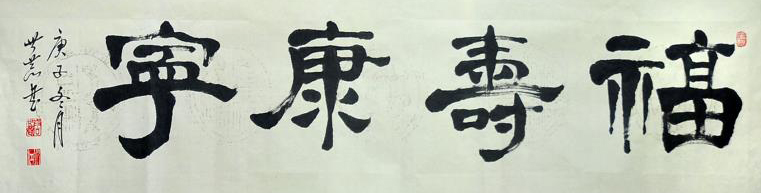 福壽康寧
庚子冬月